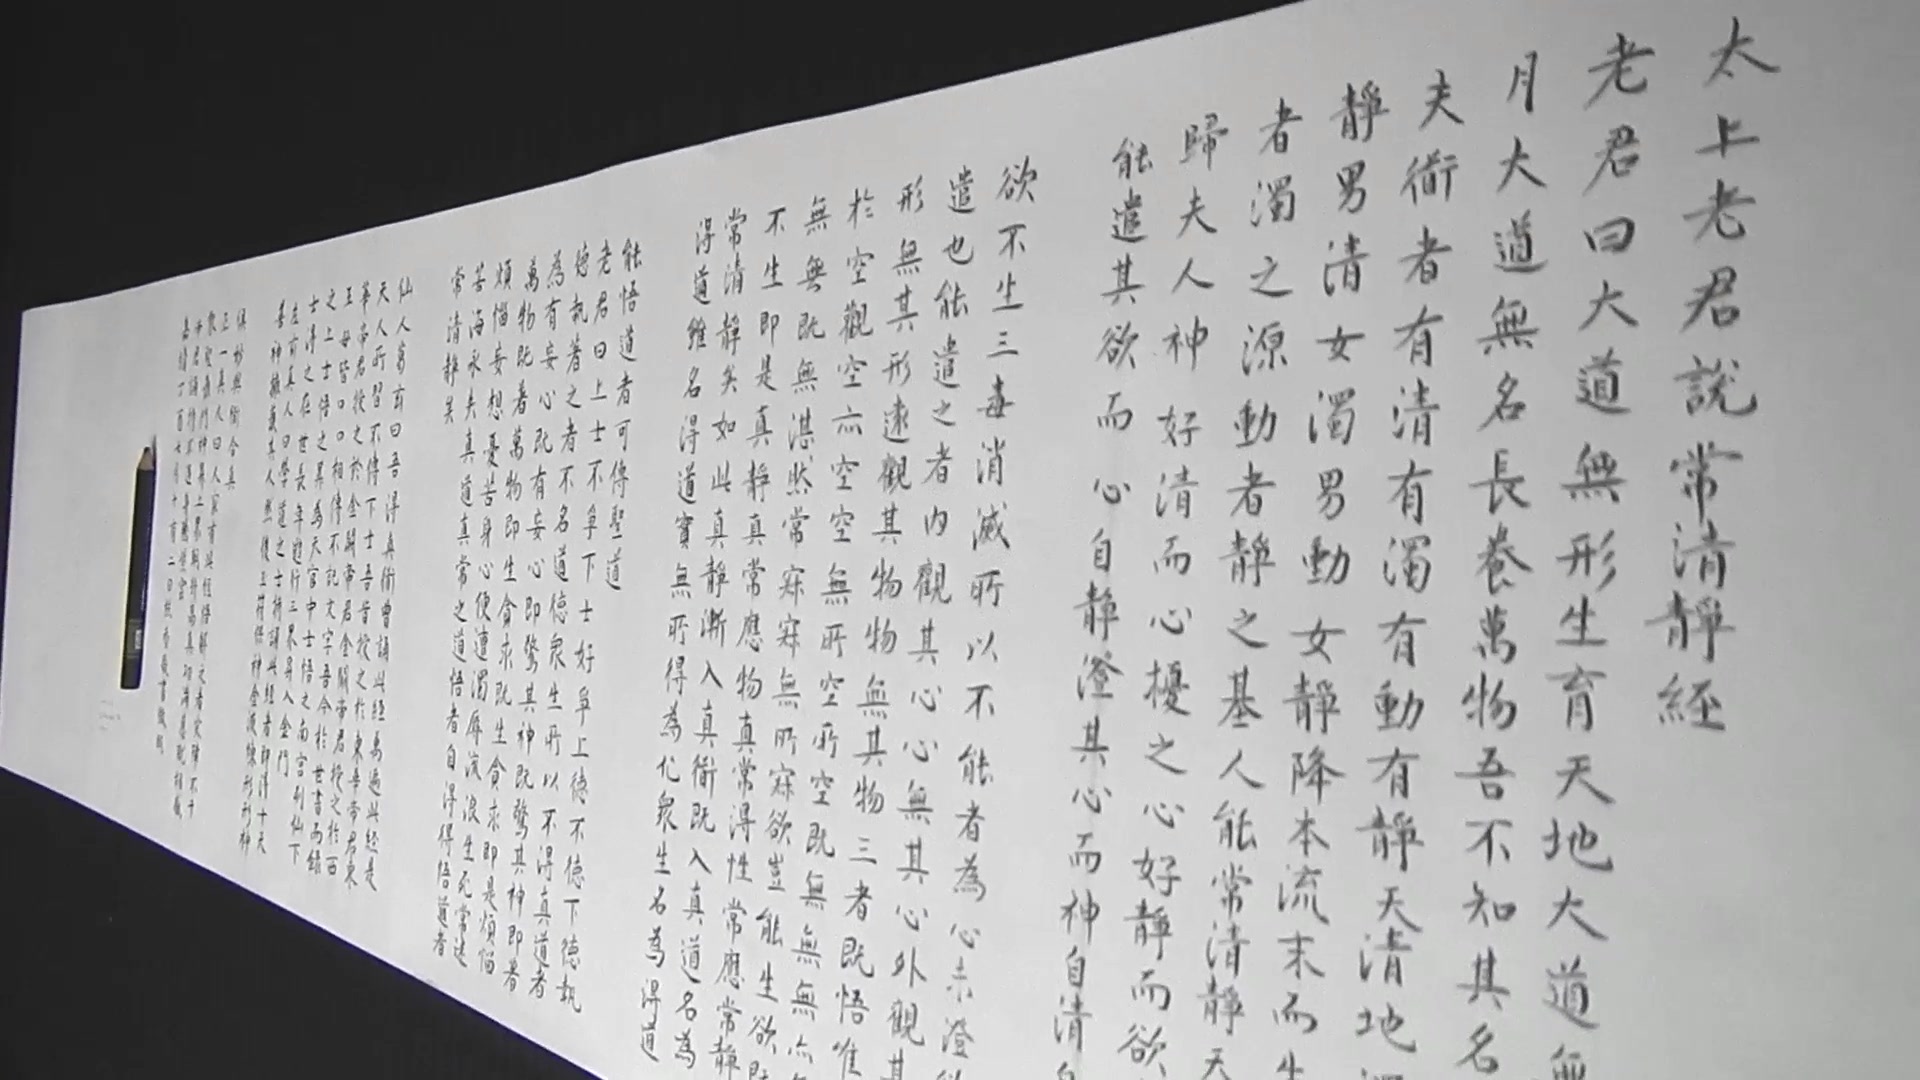 太上老君說常清靜経
老君曰大道無形生育天地大道無
月大道無名長養萬物吾不知其名
夫衜者有清有濁有動有靜天清地濁
靜男清女濁男動女靜降本流末而生
者濁之源動者靜之基人能常清靜天
歸夫人神好清而心擾之心好靜而欲
能遣其欲而心自靜澄其心而神自清自
欲不生三毒消滅所以不能者為心未澄欲
遣也能遣之者內觀其心心無其心外觀其
形無其形遠觀其物物無其物三者既悟唯
於空觀空亦空空無所空所空既無無無亦無
無無既無湛然常寂寂無所寂欲豈能生欲既
不生即是真靜真常應物真常得性常應常靜
常清靜矣如此真靜漸入真衜既入真道名為
得道雖名得道實無所得為化眾生名為得道
能悟道者可傳聖道
老君曰上士不爭下士好爭上德不德下德執
德執著之者不名道德眾生所以不得真道者
為有妄心既有妄心即驚其神既驚其神即著
萬物既著萬物即生貪求既生貪求即是煩惱
煩惱妄想憂苦身心便遭濁辱流浪生死常沈
苦海永失真道真常之道悟者自得得悟道者
常清靜矣
仙人葛玄曰吾得真衜曾誦此經萬遍此經是
天人所習不傳下士吾昔授之於東華帝君東
華帝君授之於金闕帝君金闕帝君授之於西
王母皆口口相傳不記文字吾今於世書而錄
之上士悟之昇為天官中士悟之南宮列仙下
士得之在世長年遊行三界昇入金門
左玄真人曰學道之士持誦此經者即得十天
善神擁護其人然後玉符保神金液鍊形形神
俱妙與衜合真
正一真人曰人家有此經悟解之者灾障不干
眾聖護門神昇上界朝拜高真功滿德就相感
帝君誦持不退身騰紫雲
嘉靖丁酉七月十有二日